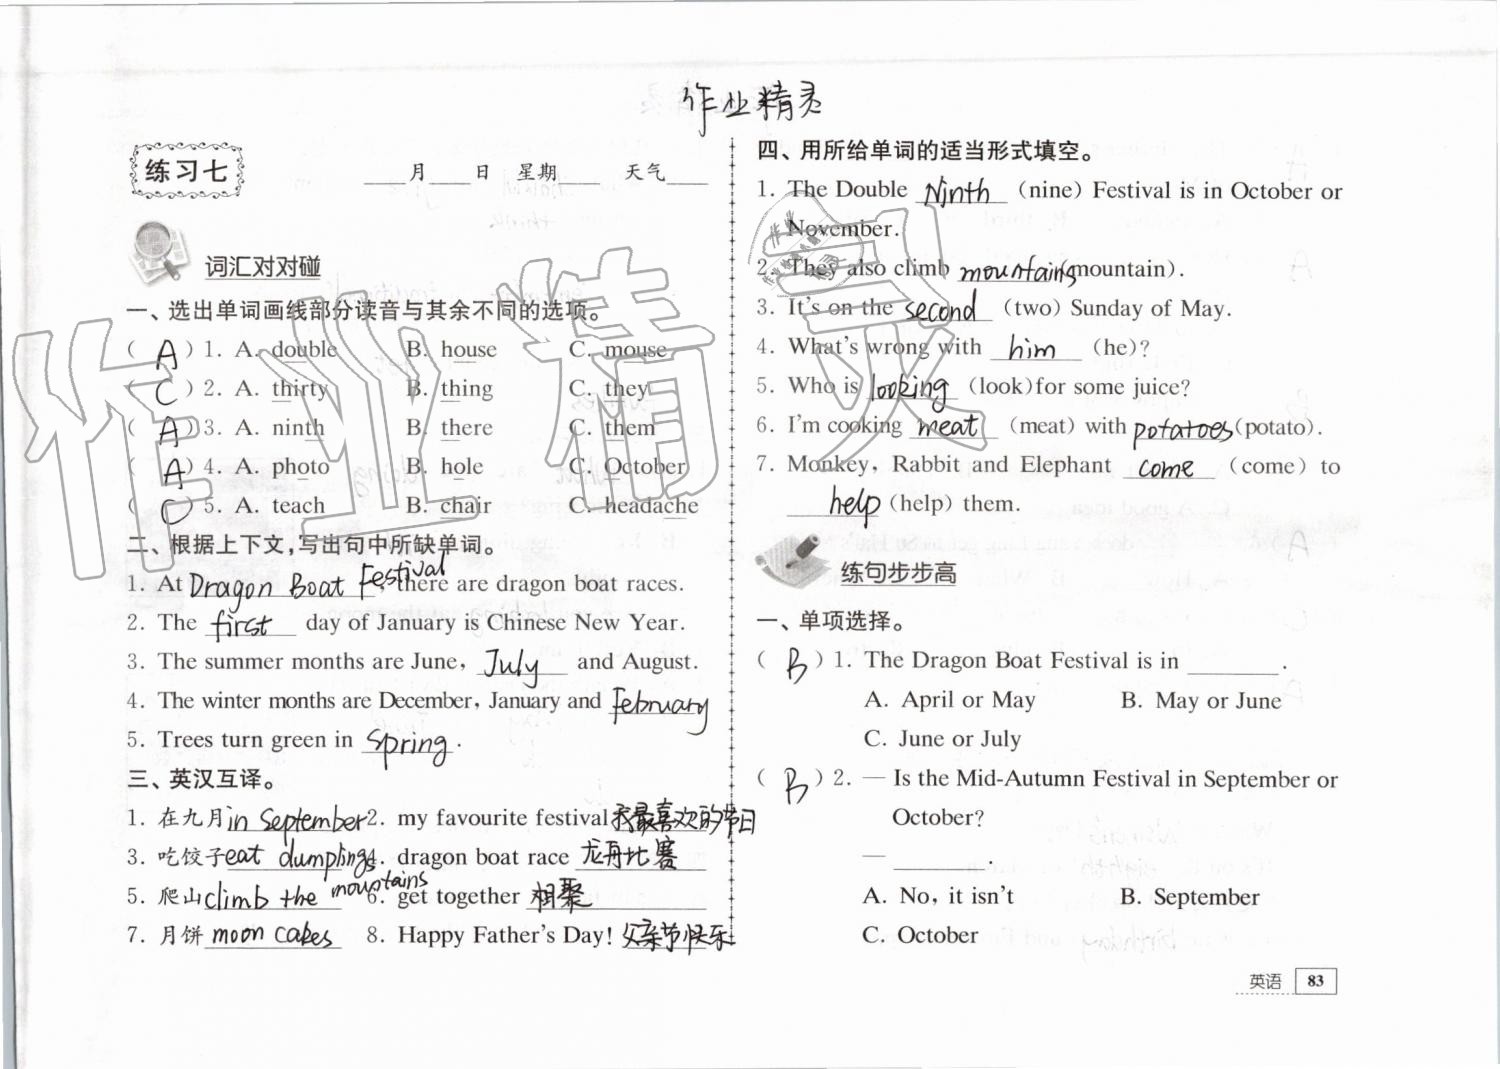 作业精灵
练习七 月 日 星期 天气
词汇对对碰
一、选出单词画线部分读音与其余不同的选项。
( A ) 1. A. double B. house C. mouse
( C ) 2. A. thirty B. thing C. they
( A ) 3. A. ninth B. there C. them
( A ) 4. A. photo B. hole C. October
( C ) 5. A. teach B. chair C. headache
二、根据上下文,写出句中所缺单词。
1. At Dragon Boat Festival, there are dragon boat races.
2. The first day of January is Chinese New Year.
3. The summer months are June, July and August.
4. The winter months are December, January and February
5. Trees turn green in spring.
三、英汉互译。
1. 在九月 in September 2. my favourite festival 我最喜欢的节日
3. 吃饺子 eat dumplings 4. dragon boat race 龙舟比赛
5. 爬山 climb the mountains 6. get together 相聚
7. 月饼 moon cakes 8. Happy Father's Day! 父亲节快乐
四、用所给单词的适当形式填空。
1. The Double Ninth (nine) Festival is in October or
November.
2. They also climb mountains (mountain).
3. It's on the second (two) Sunday of May.
4. What's wrong with him (he)?
5. Who is looking (look)for some juice?
6. I'm cooking meat (meat) with potatoes (potato).
7. Monkey, Rabbit and Elephant come (come) to
help (help) them.
练句步步高
一、单项选择。
( B ) 1. The Dragon Boat Festival is in ______.
A. April or May B. May or June
C. June or July
( B ) 2. — Is the Mid-Autumn Festival in September or
October?
— ______.
A. No, it isn't B. September
C. October
英语 83
作业精灵